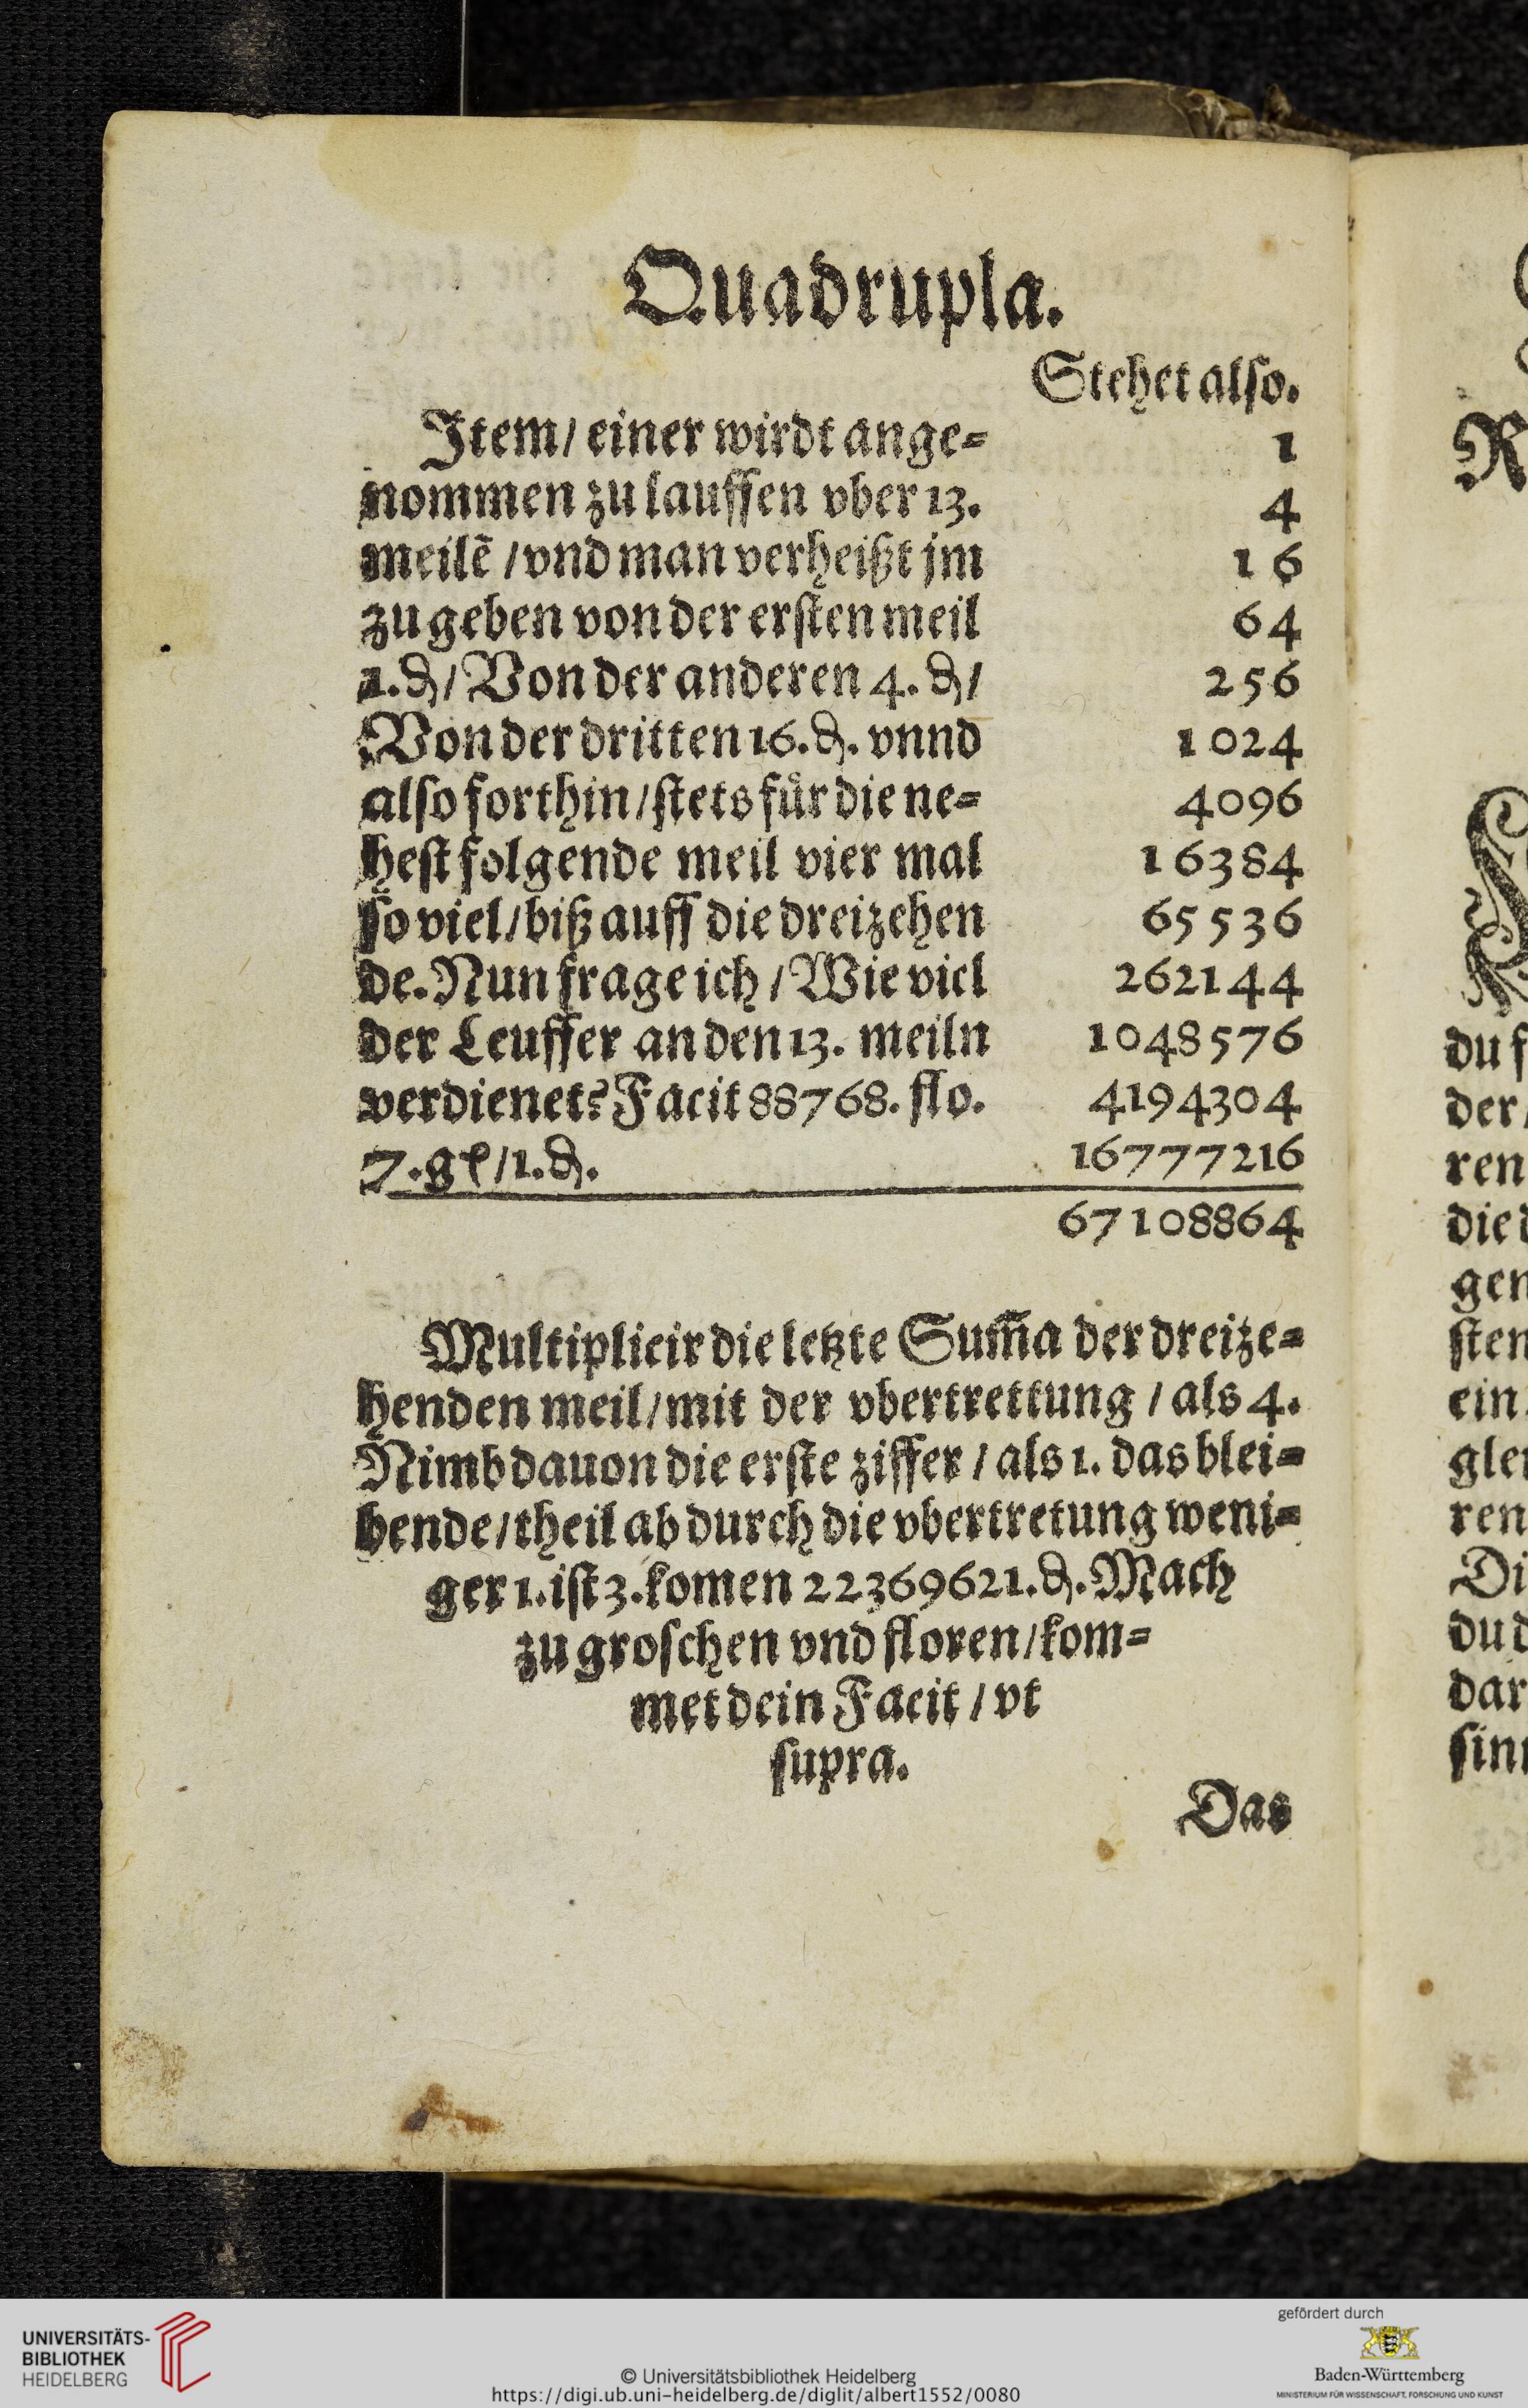 Quadrupla.
Stehet also.
Item/ einer wirdt ange=
nommen zu lauffen vber 13.
meilẽ /vnd man verheißt jm
zu geben von der ersten meil
1. ₰/ Von der anderen 4. ₰/
Von der dritten 16. ₰. vnnd
also forthin/stets fuͤr die ne=
hest folgende meil vier mal
so viel/biß auff die dreizehen
de. Nun frage ich / Wie viel
der Leuffer an den 13. meiln
verdienet? Facit 88768. flo.
7. gl /1. ₰.
1
4
16
64
256
1024
4096
16384
65536
262144
1048576
4194304
16777216
67108864
Multiplicir die letzte Sum̃a der dreize=
henden meil/mit der vbertrettung / als 4.
Nimb dauon die erste ziffer / als 1. das blei=
bende/theil ab durch die vbertretung weni=
ger 1. ist 3. komen 22369621. ₰. Mach
zu groschen vnd floren/kom=
met dein Facit / vt
supra.
Das
R
du f
der/
ren
die d
gen
sten
ein
glei
ren
Di
du d
dar
sin
UNIVERSITÄTS-
BIBLIOTHEK
HEIDELBERG
© Universitätsbibliothek Heidelberg
https://digi.ub.uni-heidelberg.de/diglit/albert1552/0080
gefördert durch
Baden-Württemberg
MINISTERIUM FÜR WISSENSCHAFT, FORSCHUNG UND KUNST